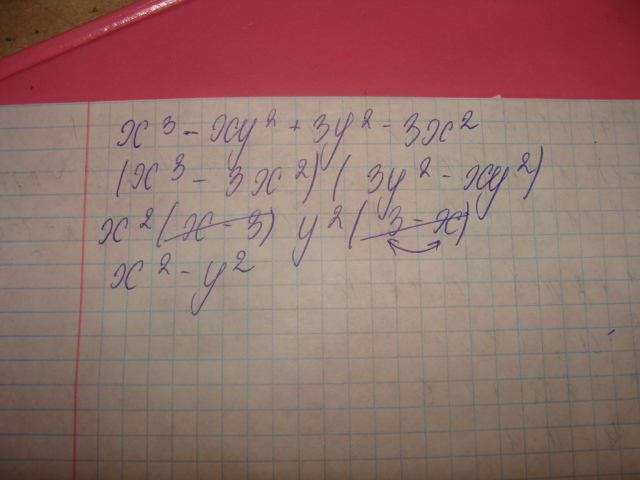 x³ - xy² + 3y² - 3x²
(x³ - 3x²) (3y² - xy²)
x²(x - 3) y²(3 - x)
x² - y²